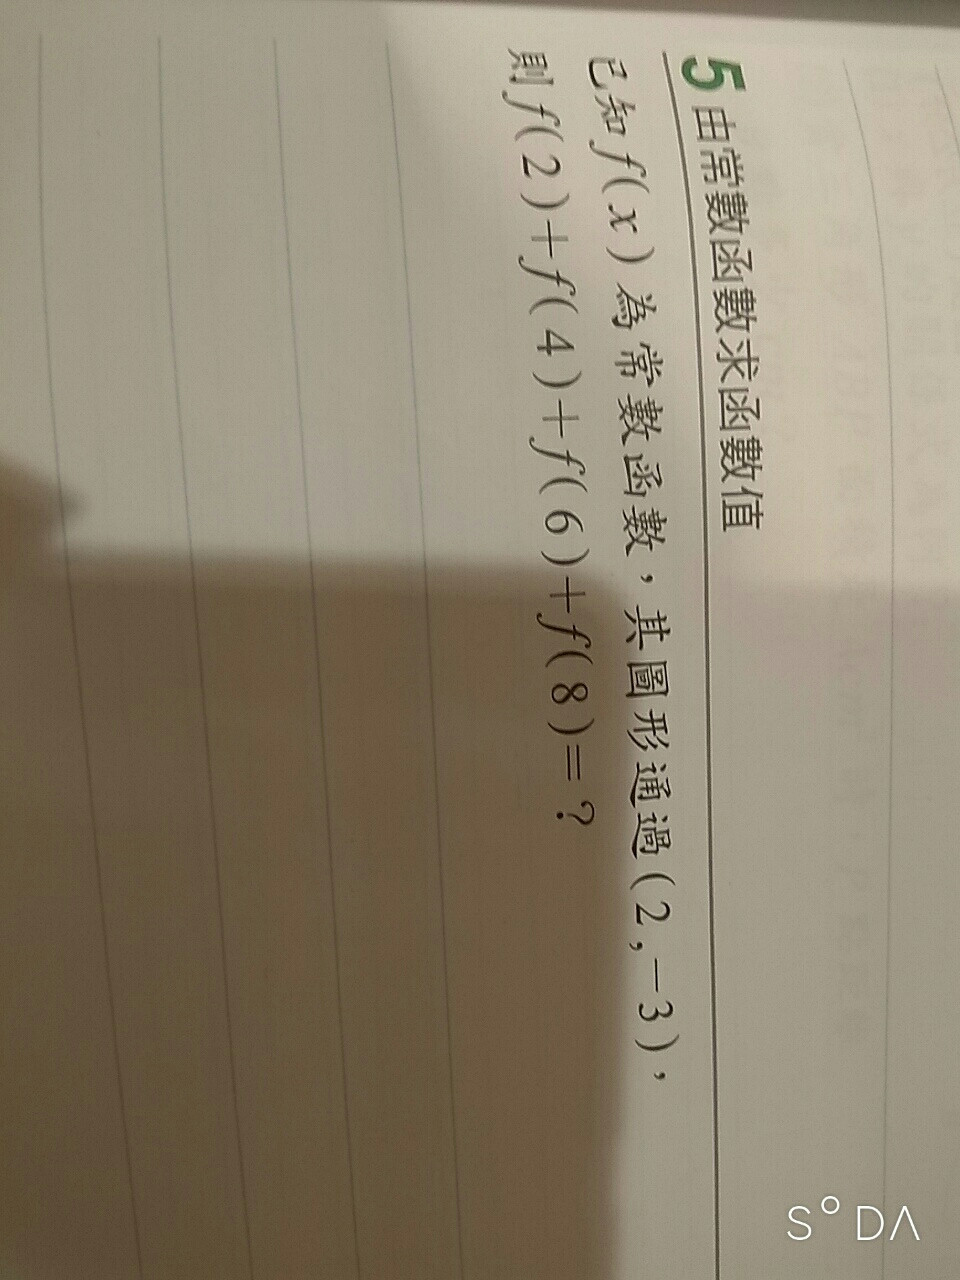 5 由常數函數求函數值
已知f(x)為常數函數，其圖形通過(2,-3)，
則f(2)+f(4)+f(6)+f(8)=?
S°DΛ